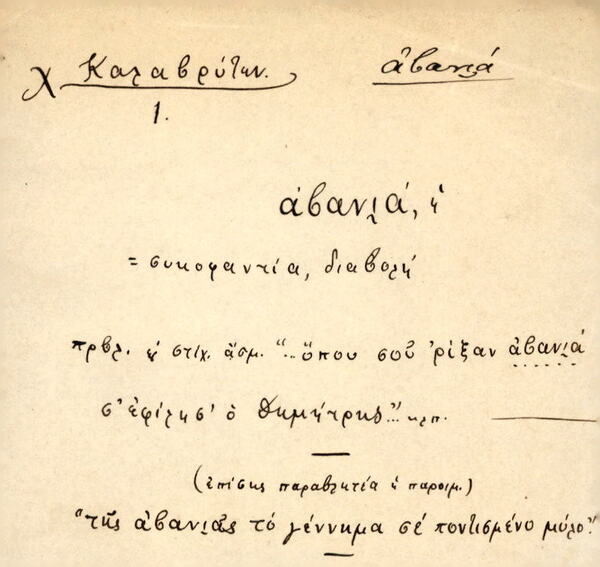 Χ Καλαβρύτων. ἀβανι̯ά
1.
ἀβανι̯ά, ἡ
= συκοφαντία, διαβολή
πρβλ. ἡ στίχ. ᾄσμ. "...ὅπου σοῦ 'ρίξαν ἀβανι̯ά
σ' ἐφίλησ' ὁ Δημήτρης..." κλπ.
(ἐπίσης παραβλητέα ἡ παροιμ.)
"τῆς ἀβανι̯ᾶς τό γέννημα σέ ποντισμένο μύλο."